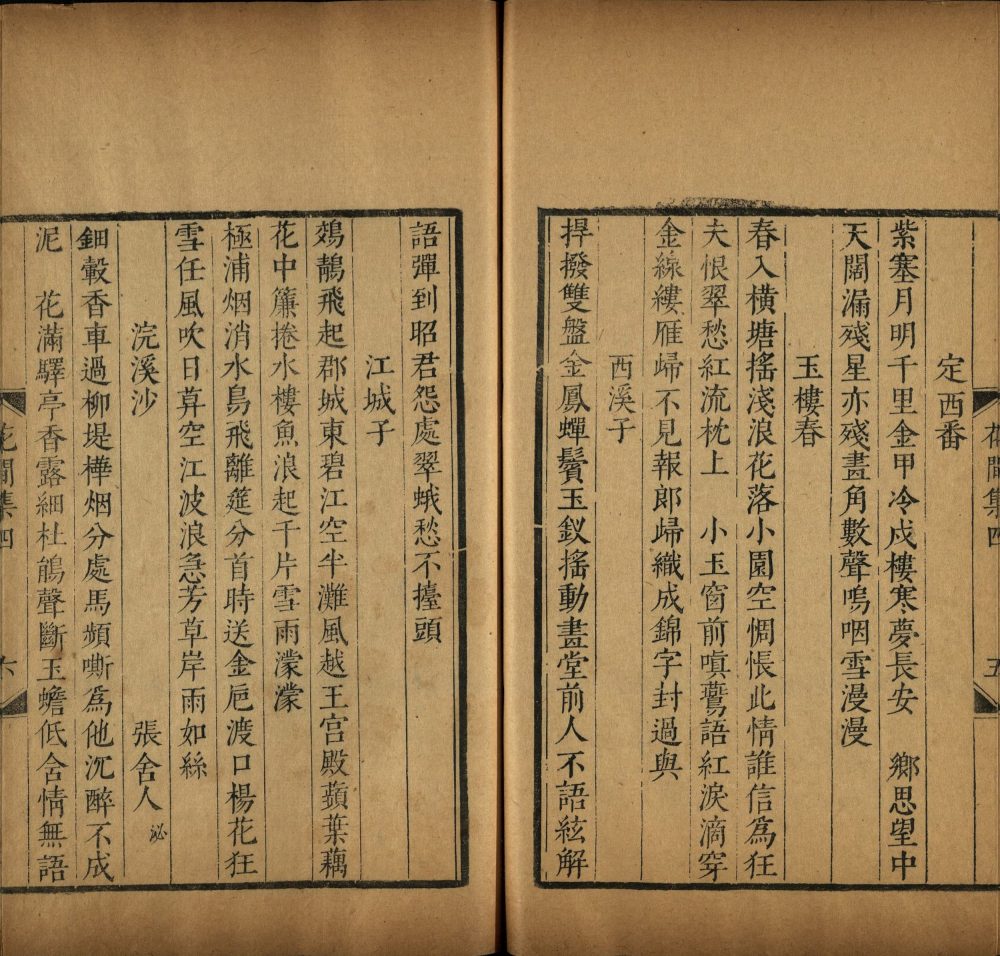 花間集四
五
定西番
紫塞月明千里金甲冷戍樓寒夢長安　鄉思望中
天闊漏殘星亦殘畫角數聲嗚咽雪漫漫
玉樓春
春入橫塘搖淺浪花落小園空惆悵此情誰信爲狂
夫恨翠愁紅流枕上　小玉窗前嗔鷰語紅淚滴穿
金線縷雁歸不見報郎歸織成錦字封過與
西溪子
捍撥雙盤金鳳蟬鬢玉釵搖動畫堂前人不語絃解
語彈到昭君怨處翠蛾愁不擡頭
江城子
鵁鶄飛起郡城東碧江空半灘風越王宮殿蘋葉藕
花中簾捲水樓魚浪起千片雪雨濛濛
極浦烟消水鳥飛離筵分首時送金巵渡口楊花狂
雪任風吹日暮空江波浪急芳草岸雨如絲
浣溪沙　張舍人泌
鈿轂香車過柳堤樺烟分處馬頻嘶爲他沉醉不成
泥　花滿驛亭香露細杜鵑聲斷玉蟾低含情無語
花間集四
六